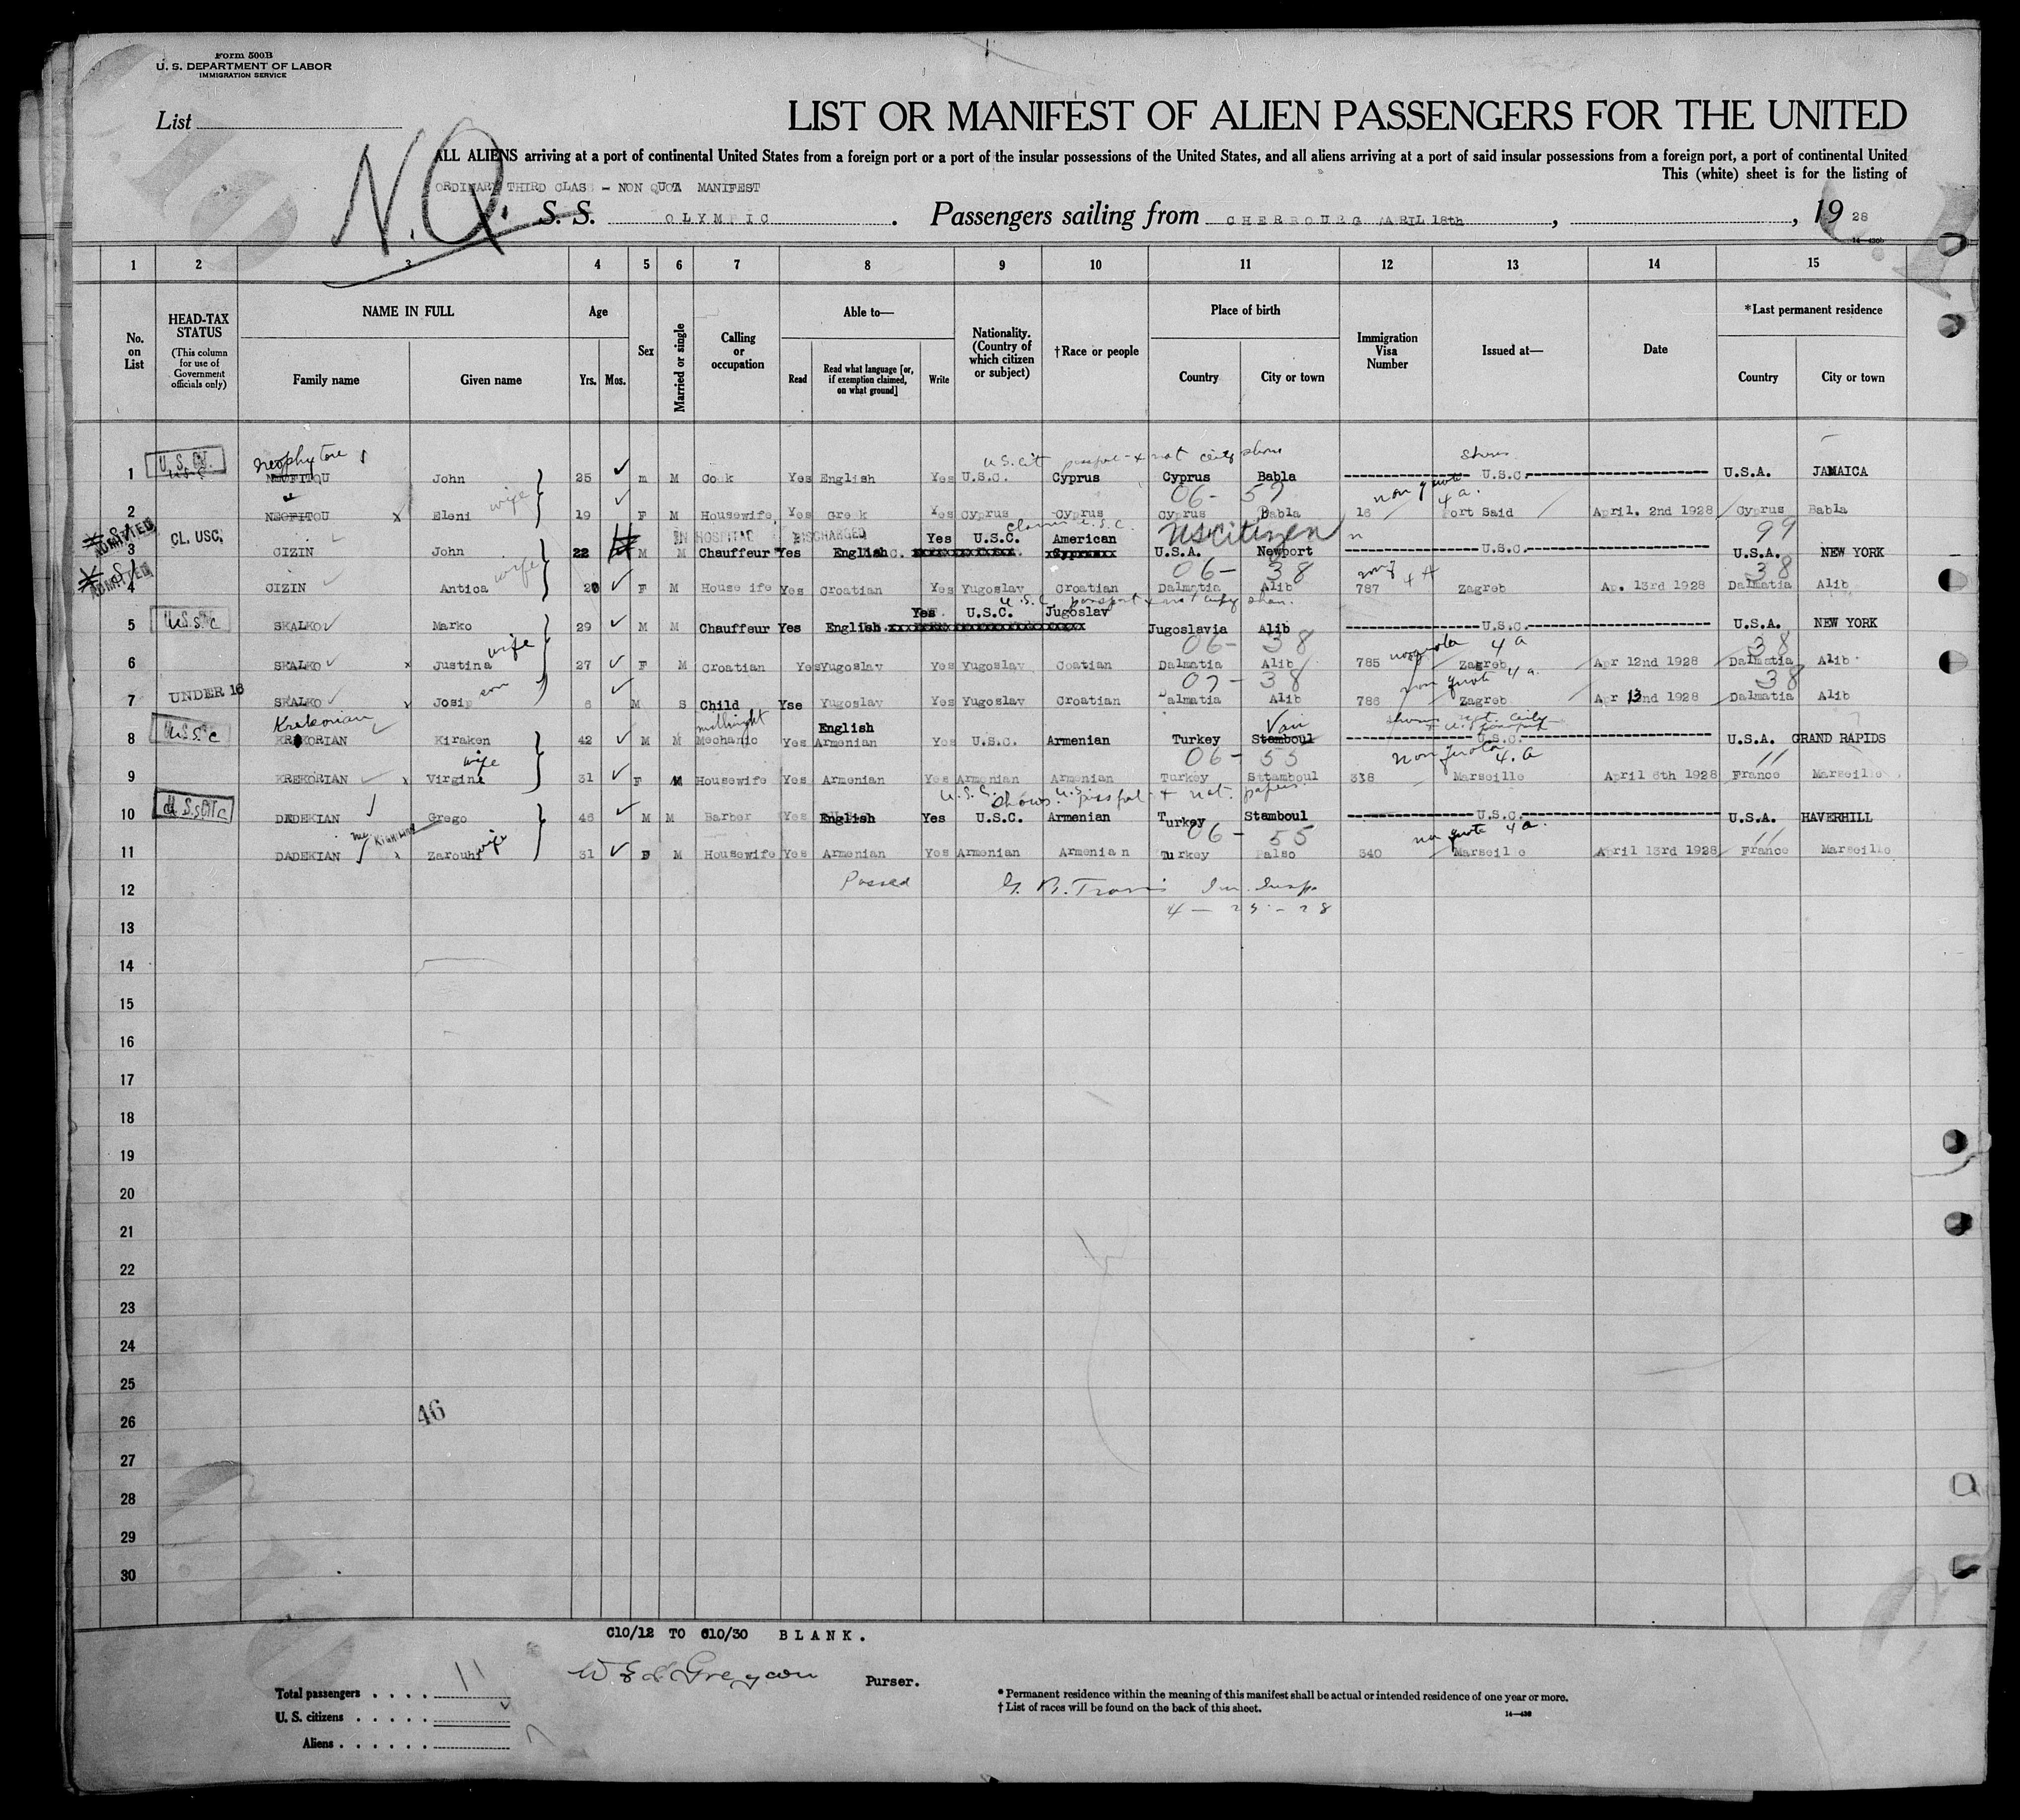 Form 500B
U. S. DEPARTMENT OF LABOR
IMMIGRATION SERVICE
List
N.Q.
LIST OR MANIFEST OF ALIEN PASSENGERS FOR THE UNITED
ALL ALIENS arriving at a port of continental United States from a foreign port or a port of the insular possessions of the United States, and all aliens arriving at a port of said insular possessions from a foreign port, a port of continental United
This (white) sheet is for the listing of
ORDINARY THIRD CLASS - NON QUOTA MANIFEST
S. S. OLYMPIC. Passengers sailing from CHERBOURG APRIL 18th, , 19 28
14—430b
1 2 3 4 5 6 7 8 9 10 11 12 13 14 15
No. on List
HEAD-TAX STATUS
(This column for use of Government officials only)
NAME IN FULL
Family name
Given name
Age
Yrs.
Mos.
Sex
Married or single
Calling or occupation
Able to—
Read
Read what language [or, if exemption claimed, on what ground]
Write
Nationality. (Country of which citizen or subject)
†Race or people
Place of birth
Country
City or town
Immigration Visa Number
Issued at—
Date
*Last permanent residence
Country
City or town
1 U.S.CIT. NEOFITOU John 25 m M Cook Yes English Yes U.S.C. Cyprus Cyprus Babla U.S.C. U.S.A. JAMAICA
06- 59 non quota 4a.
2 NEOFITOU x Eleni wife 19 F M Housewife Yes Greek Yes Cyprus Cyprus Cyprus Babla 16 Port Said April. 2nd 1928 Cyprus Babla
IN HOSPITAL DISCHARGED claims U.S.C. US citizen 99
ADMITTED
3 CL. USC. CIZIN John 22 M M Chauffeur Yes English Yes U.S.C. American U.S.A. Newport U.S.C. U.S.A. NEW YORK
06- 38 38
ADMITTED
4 CIZIN Antica wife 20 F M Housewife Yes Croatian Yes Yugoslav Croatian Dalmatia Alib 787 Zagreb Ap. 13rd 1928 Dalmatia Alib
5 U.S.C SKALKO Marko 29 M M Chauffeur Yes English Yes U.S.C. Jugoslav Jugoslavia Alib U.S.C. U.S.A. NEW YORK
06- 38 non quota 4a 38
6 SKALKO x Justina wife 27 F M Croatian Yes Yugoslav Yes Yugoslav Coatian Dalmatia Alib 785 Zagreb Apr 12nd 1928 Dalmatia Alib
07- 38 non quota 4a. 38
7 UNDER 16 SKALKO x Josip son 6 M S Child Yse Yugoslav Yes Yugoslav Croatian Dalmatia Alib 786 Zagreb Apr 13nd 1928 Dalmatia Alib
Krekorian millwright Van
8 U.S.C KREKORIAN Kiraken 42 M M Mechanic Yes English Armenian Yes U.S.C. Armenian Turkey Stamboul U.S.C. U.S.A. GRAND RAPIDS
06- 55 non quota 4.a 11
9 KREKORIAN x Virgini wife 31 F M Housewife Yes Armenian Yes Armenian Armenian Turkey Sttamboul 338 Marseille April 6th 1928 France Marseille
U.S.C. shows U.S. passport + nat. papers.
10 DADEKIAN Grego 46 M M Barber Yes English Yes U.S.C. Armenian Turkey Stamboul U.S.C. U.S.A. HAVERHILL
06- 55 non quota 4a. 11
11 DADEKIAN x Zarouhi wife 31 F M Housewife Yes Armenian Yes Armenian Armenian Turkey Palso 340 Marseille April 13rd 1928 France Marseille
12 Passed
13
14
15
16
17
18
19
20
21
22
23
24
25
26 46
27
28
29
30
C10/12 TO C10/30 BLANK.
Purser.
Total passengers 11
U. S. citizens
Aliens
* Permanent residence within the meaning of this manifest shall be actual or intended residence of one year or more.
† List of races will be found on the back of this sheet.
14—430